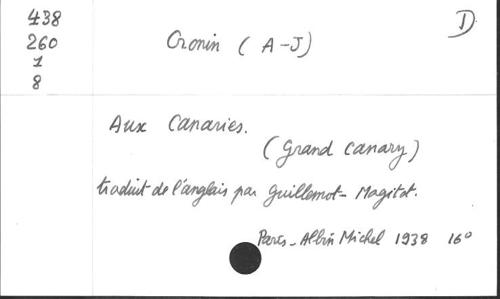 438
260
1
8
Cronin (A-J)
D
Aux Canaries.
(Grand Canary)
traduit de l'anglais par Guillemot-Magitot.
Paris-Albin Michel 1938 16°